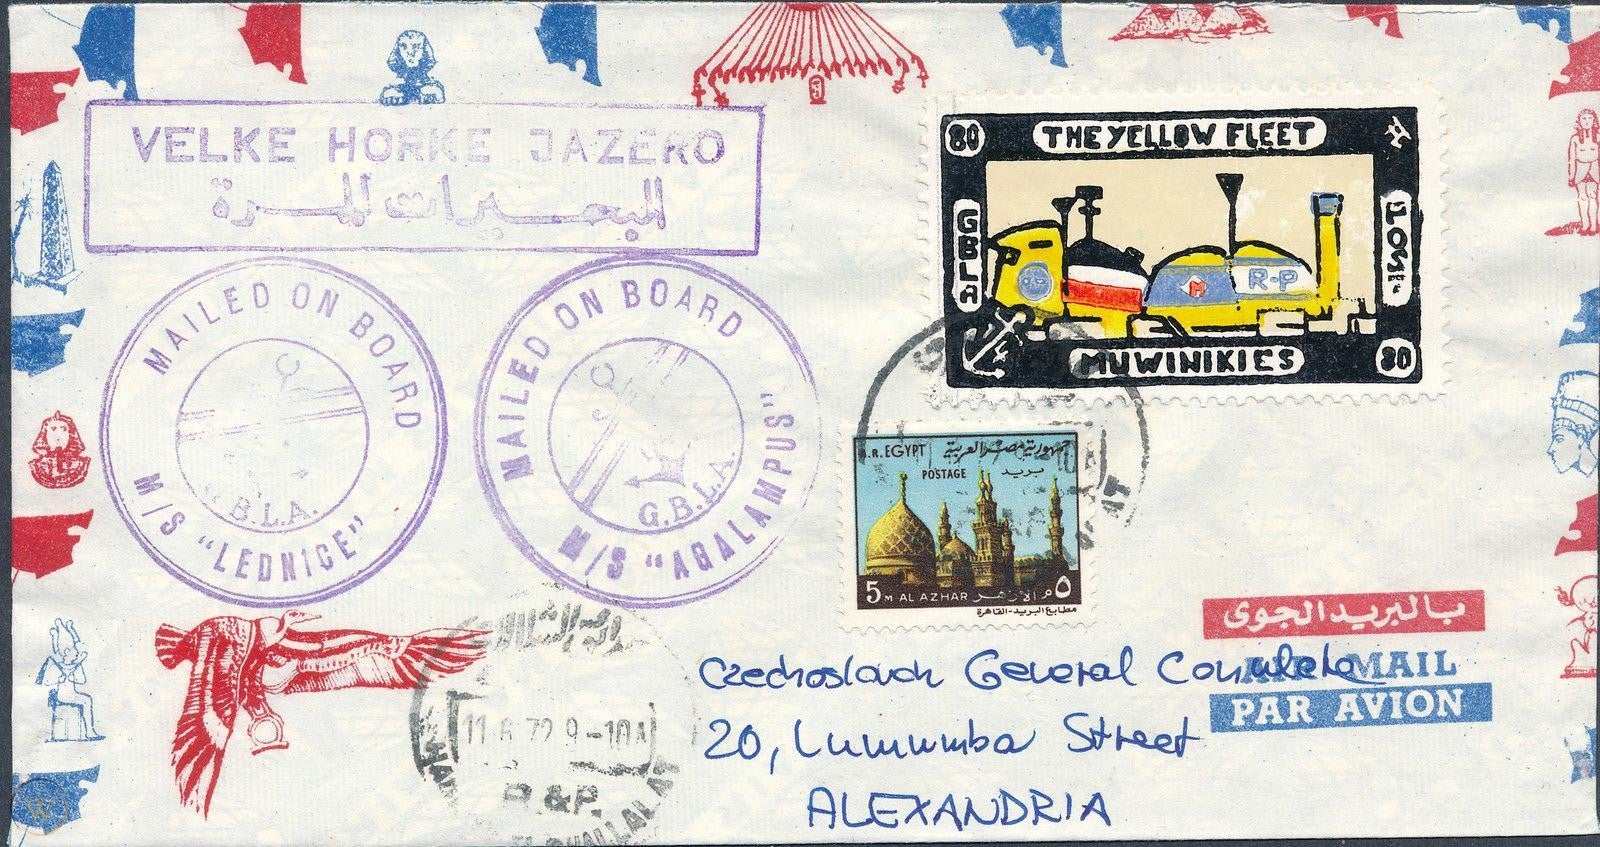 VELKE HORKE JAZERO
البحيرات المرة
MAILED ON BOARD
B.L.A.
M/S "LEDNICE"
MAILED ON BOARD
G.B.L.A.
M/S "AGALAMPUS"
80 THE YELLOW FLEET
GBLA
POST
R-P
MUWINIKIES 80
A.R. EGYPT جمهورية مصر العربية
POSTAGE بريد
5 M AL AZHAR الازهر م ٥
مطابع البريد-القاهرة
بالبريد الجوى
AIR MAIL
PAR AVION
Czechoslovak General Consulate
20, Lumumba Street
ALEXANDRIA
9-10A
P.&P.